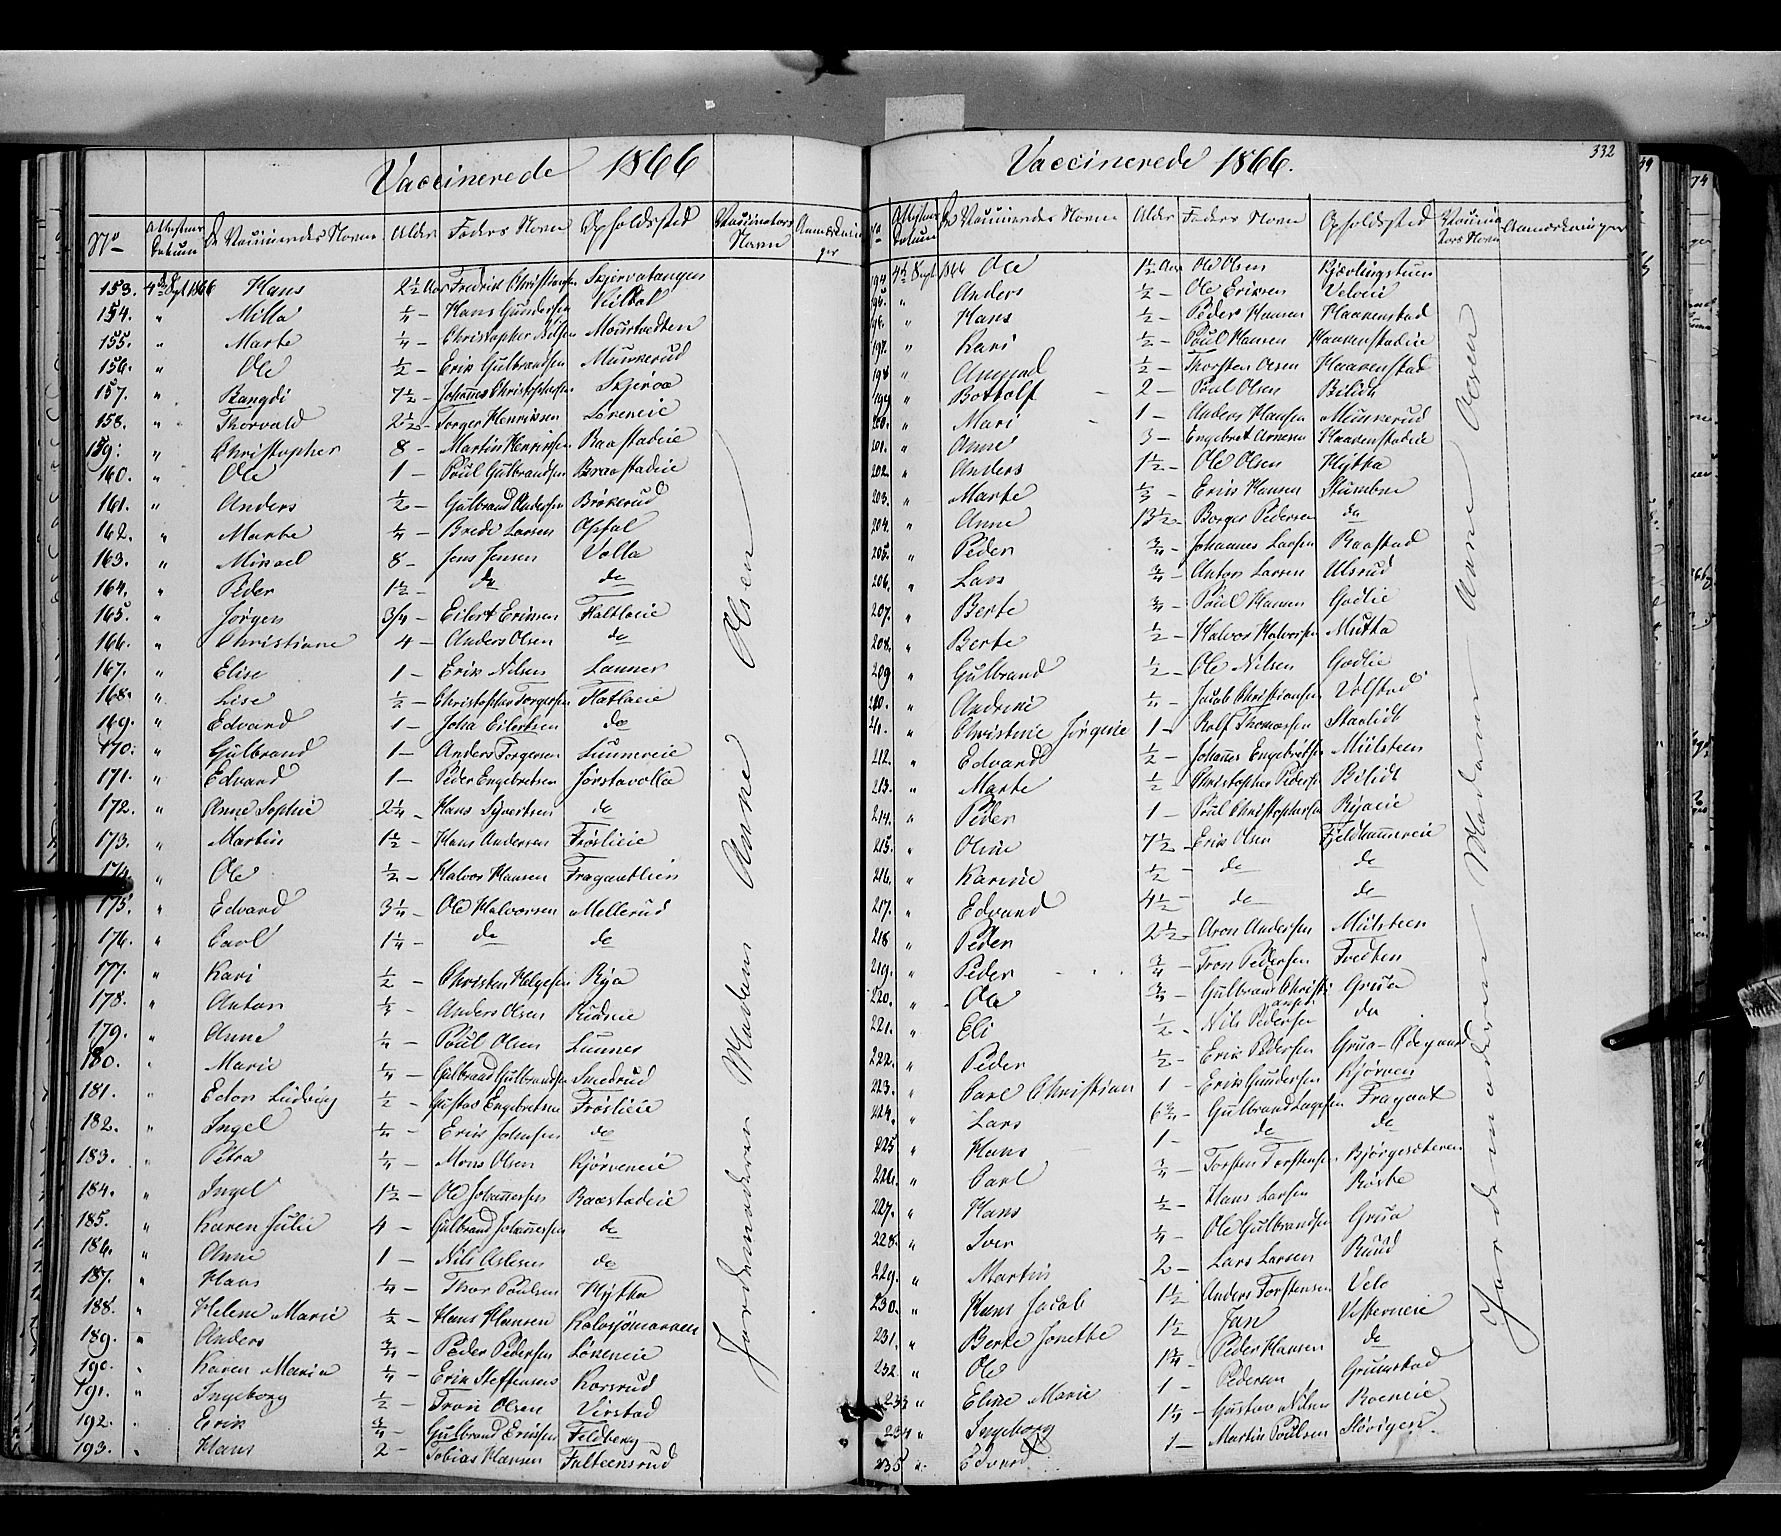 Vaccinerede 1866
No
Attestens Datum
De Vaccineredes Navne
Alder
Faders Navn
Opholdssted
Vaccinators Navn
Anmærkninger
153. 4de Sept 1866 Hans 2½ Aar Fredrik Christiansen Skjervatangen
154. " Milla ¼ - Hans Gundersen
155. " Marte ¼ - Christopher Nilsen
156. " Ole ½ - Erik Gulbrandsen Munkerud
157. " Rangdi 7½ - Johannes Christophersen Skjervaa
158. " Thorvald 2½ - Torger Henriksen Loreneie
159. " Christopher 8 - Martin Henriksen Raastadeie
160. " Ole 1 - Poul Gulbrandsen Braastadeie
161. " Anders ½ - Gulbrand Andersen Brøkerud
162. " Marte ¼ - Brede Larsen Opsal
163. " Mikael 8 - Jens Jensen Volla
164. " Peder 1½ - do do
165. " Jørgen 3/4 - Eilert Eriksen Flatlaeie
166. " Christiane 4 - Anders Olsen do
167. " Elise 1 - Erik Nilsen Lunner
168. " Lise ½ - Christopher Torgersen Flatlaeie
169. " Edvard 1 - Johan Eilertsen do
170. " Gulbrand 1 - Anders Torgersen Lunnereie
171. " Edvard 1 - Peder Engebretsen Jørstavolla
172. " Anne Sophie 2¼ - Hans Syvertsen do
173. " Martin 1½ - Hans Andersen Frøslieie
174. " Ole ½ - Halvor Hansen Fragaatlien
175. " Edvard 3¼ - Ole Halvorsen Mellerud
176. " Carl 1¼ - do do
177. " Kari ½ - Christen Helgesen Rya
178. " Anton Anders Olsen
179. " Anne ¼ - Poul Olsen Lunner
180. " Marie ¼ - Gulbrand Gulbrandsen Smedrud
181. " Edon Ludvig ½ - Gustav Engebretsen Frøslieie
182. " Ingel ¼ - Erik Johnsen do
183. " Petra ¼ - Mons Olsen Kjørveneie
184. " Ingel 1½ - Ole Johannessen Raastadeie
185. " Karen Julie 4 - Gulbrand Johannessen do
186. " Anne 1 - Nils Aslesen do
187. " Hans ¼ - Thor Poulsen Hytta
188. " Helene Marie ½ - Hans Hansen Kalvsjømarken
189. " Anders ¾ - Peder Pedersen Loreneie
190. " Karen Maria ¼ - Erik Steffensen Korsrud
191. " Ingeborg ½ - Tron Olsen Virstad
192. " Erik ¾ - Gulbrand Eriksen Feldberg
193. " Hans 2 - Tobias Hansen Falteensrud
Jordemoderen Madam Anne Olsen
Vaccinerede 1866.
332
No
Attestens Datum
De Vaccineredes Navne
Alder
Faders Navn
Opholdssted
Vaccinators Navn
Anmærkninger
194 4de Sept. 1866 Ole 1½ Aar Ole Olsen Kjævlingstuen
195. " Anders ½ - Ole Eriksen Veloeie
196. " Hans ½ - Peder Hansen Haakenstad
197. " Kari ½ - Poul Hansen Haakenstadeie
198 " ½ - Thorsten Olsen Haakenstad
199 " Bottolf 2 - Poul Olsen Bilidt
200. " Mari 1 - Anders Hansen Munkerud
201. " Anne 3 - Engebret Arnesen Haakenstadeie
202. " Anders 1½ - Ole Olsen Hytta
203. " Marte Erik Hansen Stumbne
204. " Anne 13½ - Borger Pedersen do
205. " Peder ¾ - Johannes Larsen Raastad
206. " Lars ¾ - Anton Larsen Alsrud
207. " Berte ¾ - Poul Hansen Godlie
208. " Berte ½ - Halvor Halvorsen Mutta
209 " Gulbrand ½ - Ole Nilsen Godlie
210. " Andrine ¼ - Jacob Christiansen Volstad
211. " Christine Jørgine 1 - Rolf Thomassen Staalidt
212. " Edvard ½ - Johannes Engebretsen Mulsteen
213. " Marte ½ - Christopher Pedersen Bilidt
214. " Peder 1 - Poul Christophersen Ryaeie
215. " Oline 7½ - Erik Olsen Fjeldhammereie
216. " Karine ½ - do do
217. " Edvard 4½ - do do
218 " Peder 2½ - Aron Andersen Mulsteen
219. " Peder ¾ - Tron Pedersen
220. " Ole ¾ - Gulbrand Christiansen Grua
221. " Eli ½ - Nils Pedersen do
222. " Peder ½ - Erik Pedersen Grua-Ødegaard
223. " Carl Christian 1 - Erik Gundersen Kjørven
224. " Lars 6¾ - Gulbrand Lagesen Fragaat
225 " Hans 1 - do do
226. " Carl ¾ - Torsten Torstensen Bjørgesæteren
227. " Hans ½ - Hans Larsen Røste
228. " Iver ¼ - Ole Gulbrandsen Grua
229. " Martin 2 - Lars Larsen Ruud
230. " Hans Jacob 1½ Anders Torstensen Velo
231. " Berte Jonette 1½ Jan Vesterneie
232. " Ole 1¾ - Peder Hansen do
233 " Eline Marie 1 - Pedersen Grumstad
234 " Ingeborg 1¼ - Gustav Nilsen Roeneie
235 " Edvard 1 - Martin Poulsen
Jordemoderen Madam Anne Olsen